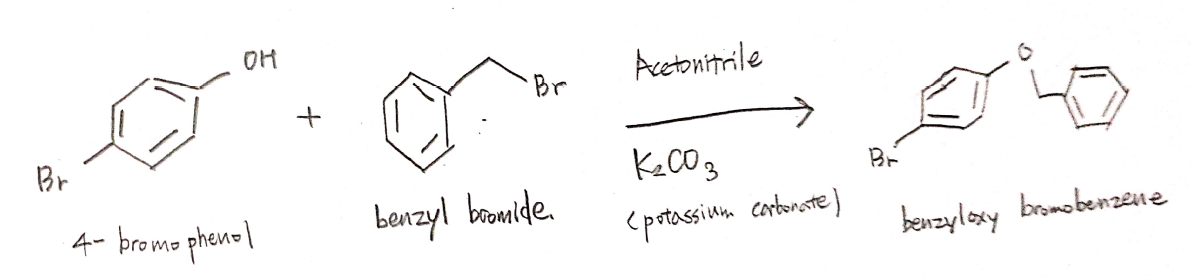 OH
Br
4- bromophenol
+
Br
benzyl bromide.
Acetonitrile
K₂CO₃
(potassium carbonate)
O
Br
benzyloxy bromobenzene